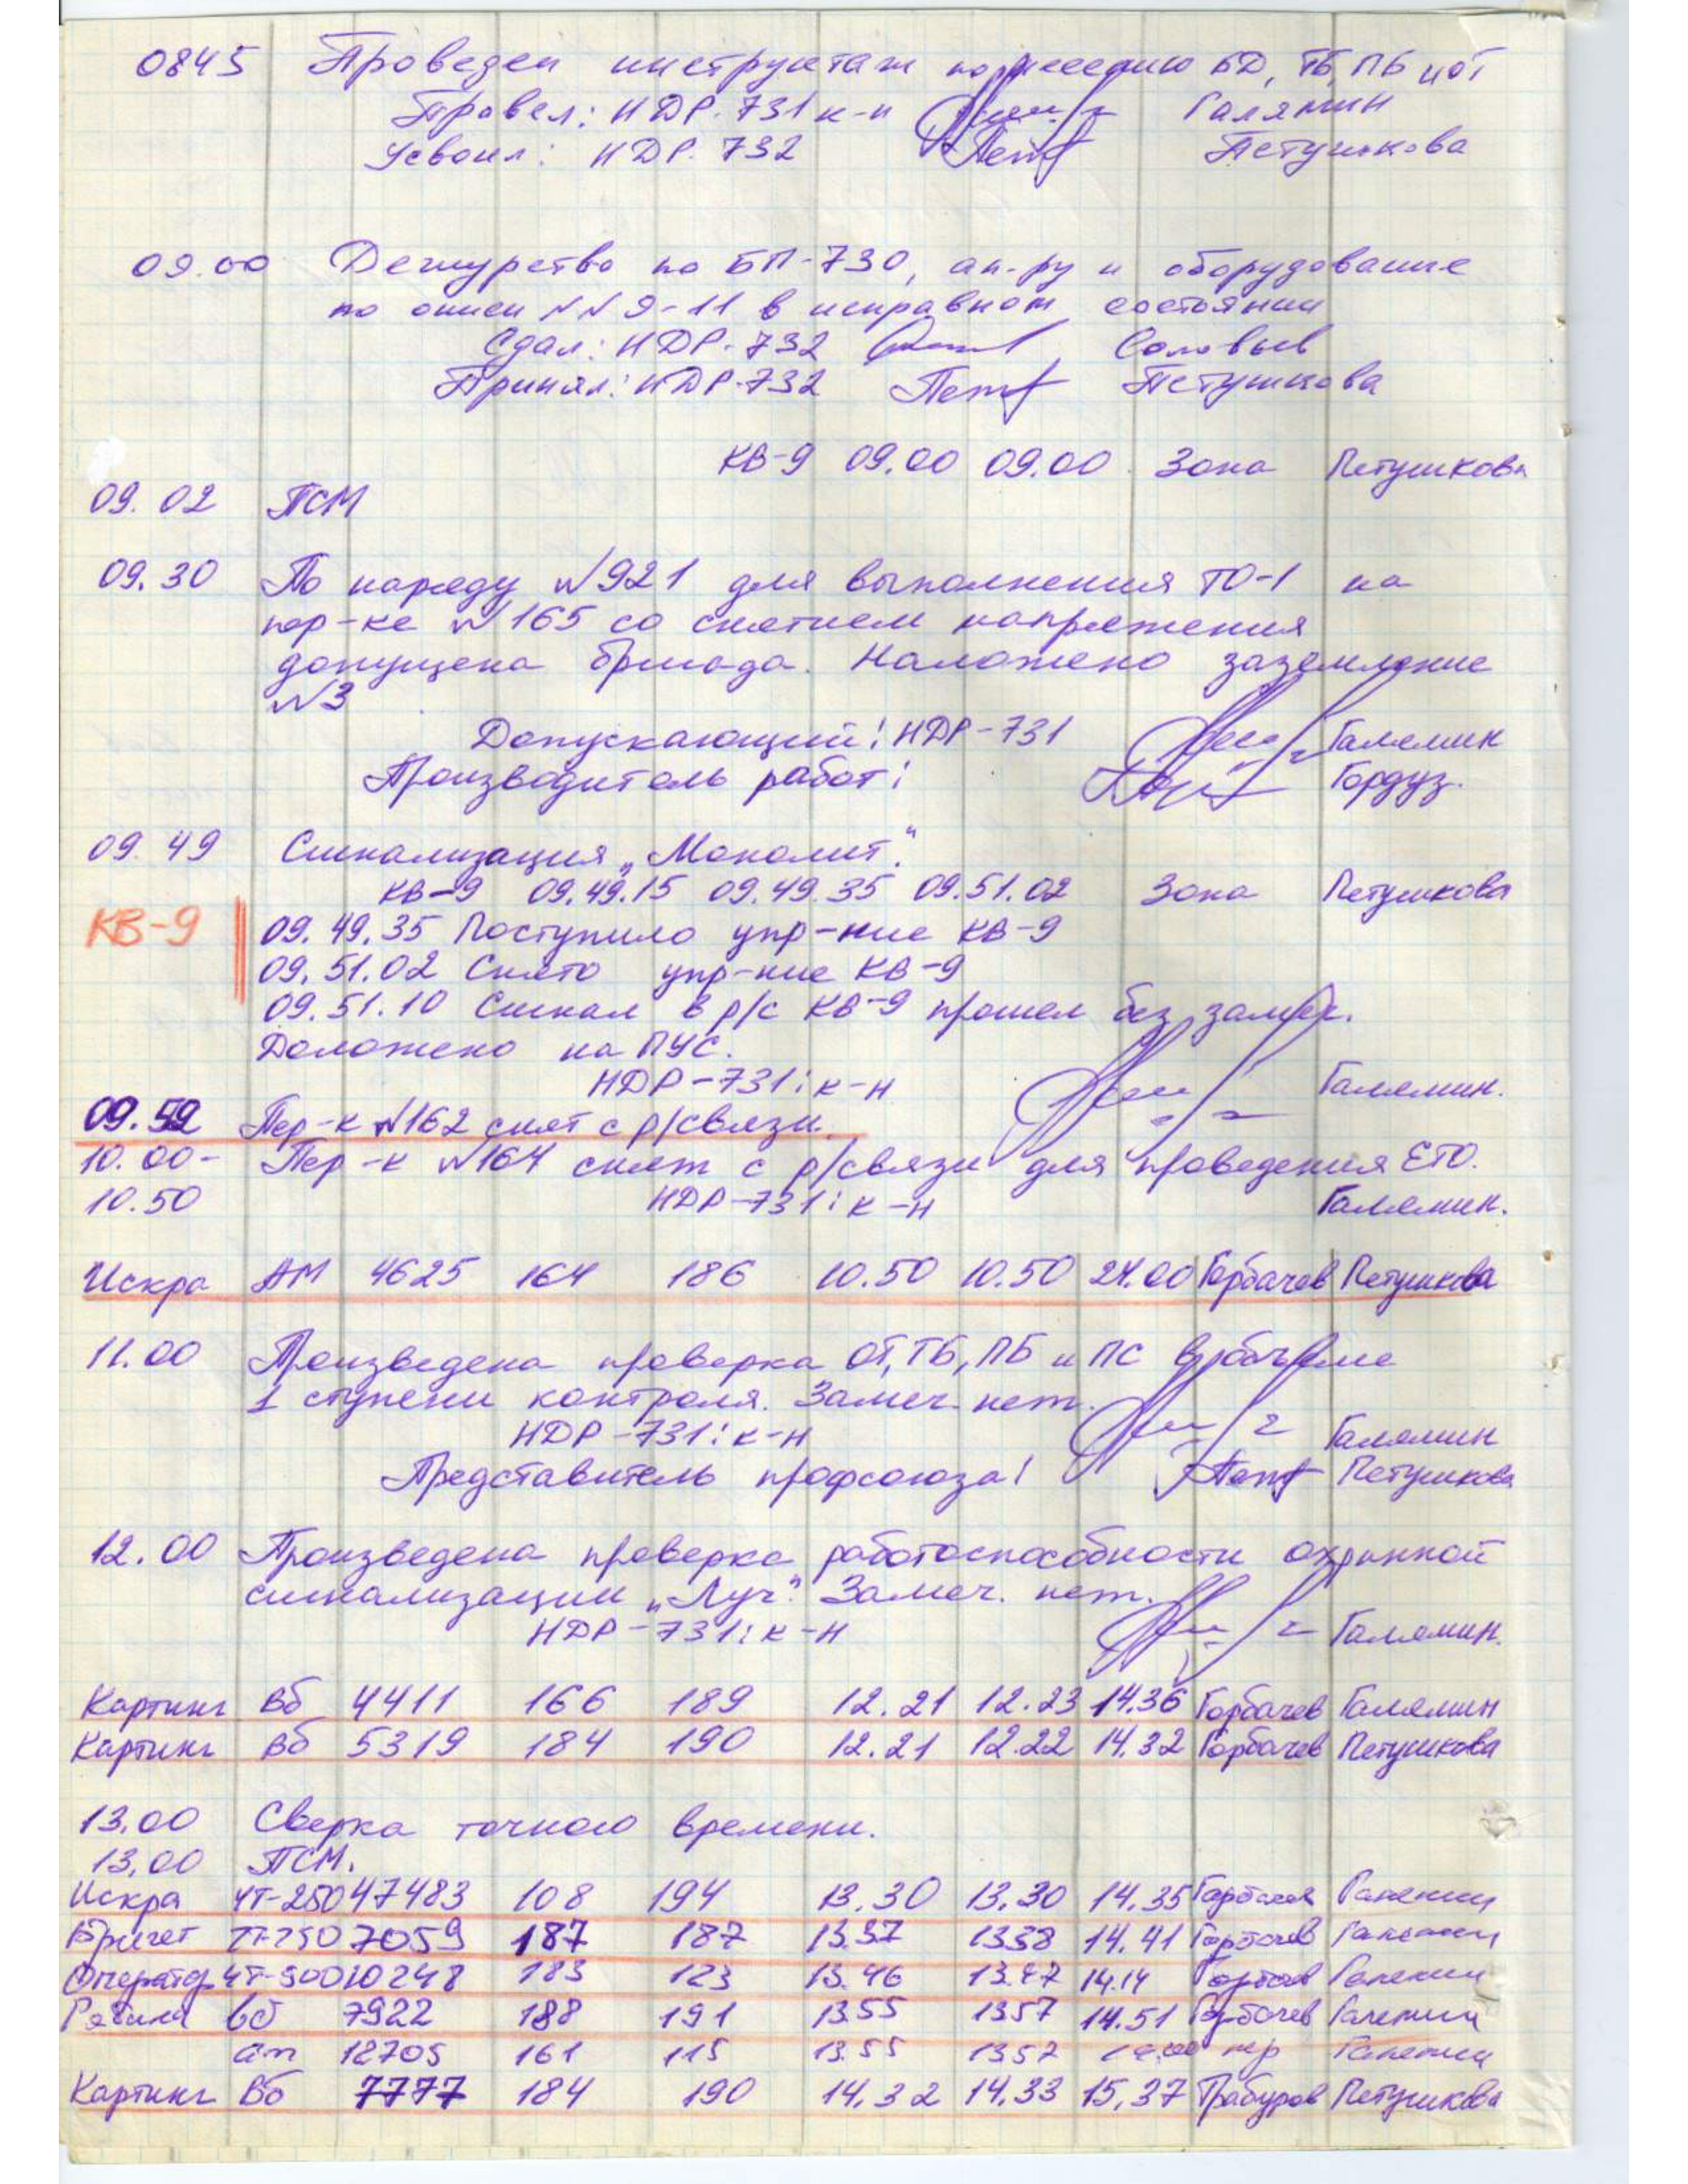 0845 Проведен инструктаж по несению БД, ТБ, ПБ и ОТ
Провел: НДР-731 к-н Галямин
Усвоил: НДР-732 Петушкова
09.00 Дежурство по БП-730, ап-ру и оборудование
по описи №№ 9-11 в исправном состоянии
Сдал: НДР-732 Соловьев
Принял: НДР-732 Петушкова
КВ-9 09.00 09.00 Зона Петушкова
09.02 ПСМ
09.30 По наряду №921 для выполнения ТО-1 на
пер-ке №165 со снятием напряжения
допущена бригада. Наложено заземление
№3
Допускающий: НДР-731 Галямин
Производитель работ: Гордуз.
09.49 Сигнализация „Монолит".
КВ-9 09.49.15 09.49.35 09.51.02 Зона Петушкова
КВ-9 09.49.35 Поступило упр-ние КВ-9
09.51.02 Снято упр-ние КВ-9
09.51.10 Сигнал в р/с КВ-9 прошел без замеч.
Доложено на ПУС.
НДР-731: к-н Галямин.
09.52 Пер-к №162 снят с р/связи.
10.00- Пер-к №164 снят с р/связи для проведения ЕТО.
10.50 НДР-731: к-н Галямин.
Искра АМ 4625 164 186 10.50 10.50 24.00 Горбачев Петушкова
11.00 Произведена проверка ОТ, ТБ, ПБ и ПС в объеме
1 ступени контроля. Замеч. нет.
НДР-731: к-н Галямин
Представитель профсоюза: Петушкова
12.00 Произведена проверка работоспособности охранной
сигнализации „Луч". Замеч. нет.
НДР-731: к-н Галямин.
Картинг Вб 4411 166 189 12.21 12.23 14.36 Горбачев Галямин
Картинг Вб 5319 184 190 12.21 12.22 14.32 Горбачев Петушкова
13.00 Сверка точного времени.
13.00 ПСМ.
Искра ЧТ-250 47483 108 194 13.30 13.30 14.35 Горбачев Галямин
Бригет ЧТ-250 7059 187 187 13.37 1338 14.41 Горбачев Галямин
Оператор ЧТ-500 10248 183 123 13.46 13.47 14.14 Горбачев Галямин
Рябина Вб 7922 188 191 13.55 1357 14.51 Горбачев Галямин
ат 12705 161 115 13.55 1357 пер Галямин
Картинг Вб 7777 184 190 14.32 14.33 15.37 Трабуров Петушкова